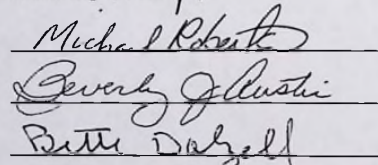 Michael Roberts
Beverly J Austin
Bette Dalzell